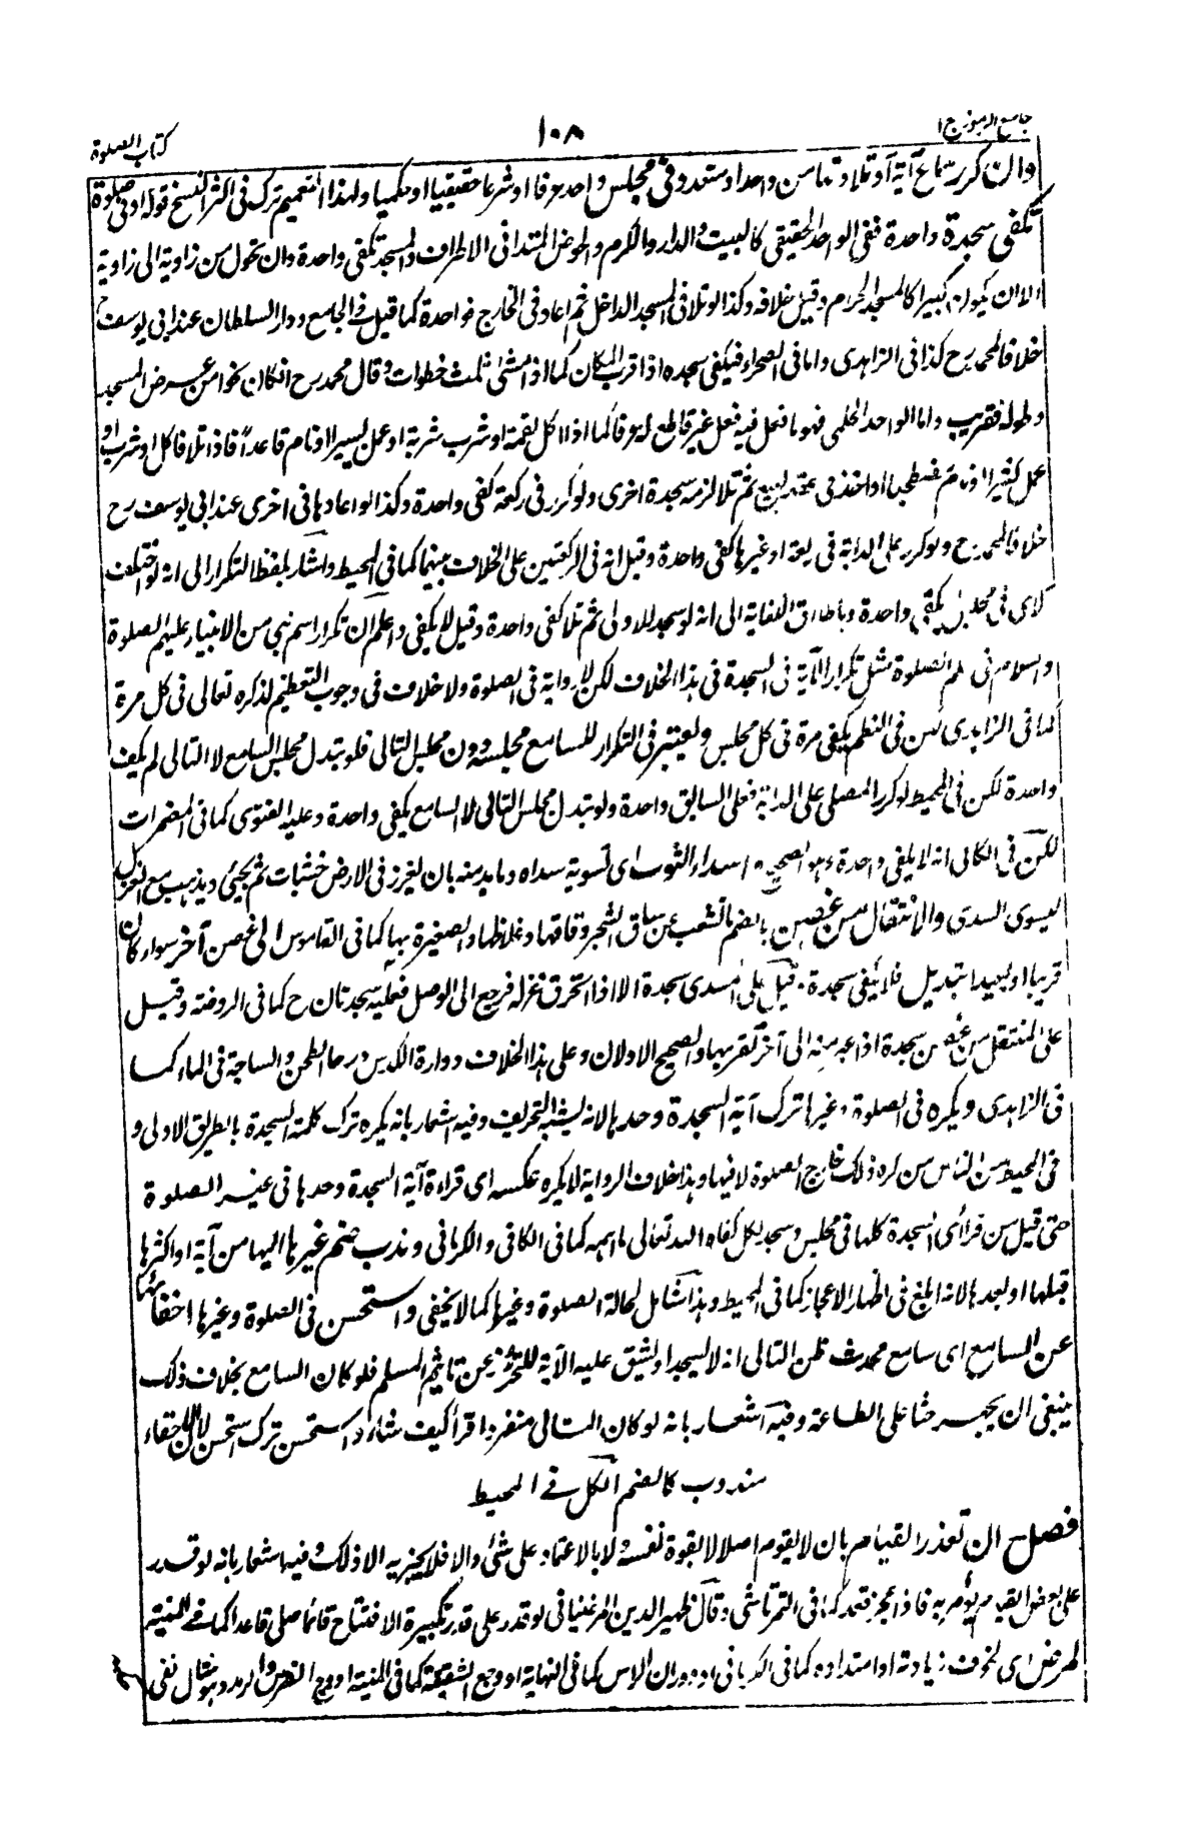 جامع الرموز ج ا
١٠٨
كتاب الصلوة
وان كرر سماع آية أو تلاوتها من واحد او متعدد في مجلس واحد عرفا او شرعا حقيقيا او حكميا ولهذا التعميم ترك في اكثر النسخ قوله او في صلوة
تكفي سجدة واحدة ففي الواحد الحقيقي كالبيت والدار والكرم والحوض الممتد في الاطراف والمسجد تكفي واحدة وان تحول من زاوية الى زاوية
الا ان يكون كبيرا كالمسجد الحرام وقيل خلافه وكذا لو تلا في المسجد الداخل ثم اعاد في الخارج فواحدة كما قيل في الجامع ودار السلطان عند ابي يوسف رح
خلافا لمحمد رح كذا في الزاهدى واما في الصحراء فيكفي سجده اذا قرب المكان كما اذا مشى ثلث خطوات وقال محمد رح ان كان نحوا من عرض المسجد
وطوله فقريب واما الواحد الحكمي فهو ما تخلل فيه فعل غير قاطع له عرفا كما اذا اكل لقمة او شرب شربة او عمل يسيرا او نام قاعداً فاذا تلا فاكل او شرب او
عمل كثيرا او نام مضطجعا او اخذ في عقد البيع ثم تلا لزمه سجدة اخرى ولو كرر في ركعة كفى واحدة وكذا لو اعادها في اخرى عند ابي يوسف رح
خلافا لمحمد رح ولو كرر على الدابة في ركعة او غيرها كفى واحدة وقيل انه في الركعتين على الخلاف بينهما كما في المحيط واشار بلفظ التكرار الى انه لو اختلف
الآى في مجلس يكفي واحدة وباطلاق الكفاية الى انه لو سجد للاولى ثم تلا كفى واحدة وقيل لا يكفي واعلم ان تكرار اسم نبي من الانبياء عليهم الصلوة
والسلام في لزوم الصلوة مثل تكرار الآية في السجدة في هذا الخلاف لكن لا رواية في الصلوة ولا خلاف في وجوب التعظيم لذكره تعالى في كل مرة
كما في الزاهدى لكن في النظم يكفي مرة في كل مجلس ويعتبر في التكرار للسامع مجلسه دون مجلس التالي فلو تبدل مجلس السامع لا التالى لم يكف
واحدة لكن في المحيط لو كرر المصلى على الدابة فعلى السابق واحدة ولو تبدل مجلس التالى لا السامع يكفي واحدة وعليه الفتوى كما في المضمرات
لكن في الكافي انه لا يكفي واحدة وهو الصحيح واسداء الثوب اى تسوية سداه وما يد منه بان يغرز في الارض خشبات ثم يجيئ ويذهب مع الغزل
ليسوى السدى والانتقال من غصن بالضم ما تشعب عن ساق الشجر وقاقها وغلاظها والصغيرة بهاء كما في القاموس الى غصن آخر سواء كان
قريبا او بعيدا تبديل فلا يكفي سجدة وقيل على المسدى سجدة الا اذا انخرق غزله فرجع الى الوصل فعليه سجدتان ح كما في الروضة وقيل
على المنتقل من غصن سجدة اذا عبر منه الى آخر تقربها والصحيح الاولان وعلى هذا الخلاف دوارة الكدس ورحا الطحن والساجة في الماء كما
في الزاهدى ويكره في الصلوة وغيرها ترك آية السجدة وحدها لانه يشبه التحريف وفيه اشعار بانه يكره ترك كلمة السجدة بالطريق الاولى و
في المحيط من الناس من كره ذلك خارج الصلوة لا فيها وهذا خلاف الرواية لا يكره عكسه اى قراءة آية السجدة وحدها في غير الصلوة
حتى قيل من قرأ آى السجدة كلها في مجلس وسجد لكل كفاه الله تعالى ما اهمه كما في الكافي والكرماني وندب ضم غيرها اليها من آية او اكثرها
قبلها او بعدها لانه ابلغ في اظهار الاعجاز كما في المحيط وهذا شامل لحالة الصلوة وغيرها كما لا يخفى واستحسن في الصلوة وغيرها اخفائها
عن السامع اى سامع محدث ظن التالى انه لا يسجد او يشق عليه الآية للتحرز عن تأثيم المسلم فلو كان السامع بخلاف ذلك
ينبغى ان يجهر حثا على الطاعة وفيه اشعار بانه لو كان التالى منفردا قرأ كيف شاء واستحسن ترك استحسن لان الاخفاء
مندوب كالضم الكل في المحيط
فصل ان تعذر القيام بان لا يقوم اصلا لا بقوة نفسه ولا بالاعتماد على شئ والا فلا يجزيه الا ذلك وفيه اشعار بانه لو قدر
على بعض القيام يؤمر به فاذا عجز قعد كما في التمرتاشى وقال ظهير الدين المرغيناني لو قدر على قدر تكبيرة الافتتاح قائما صلى قاعدا كما في المنية
لمرض اى لخوف زيادته او امتداده كما في الكرماني او دوران الراس كما في النهاية او وجع الشقيقة كما في المنية او وجع الضرس والرمد